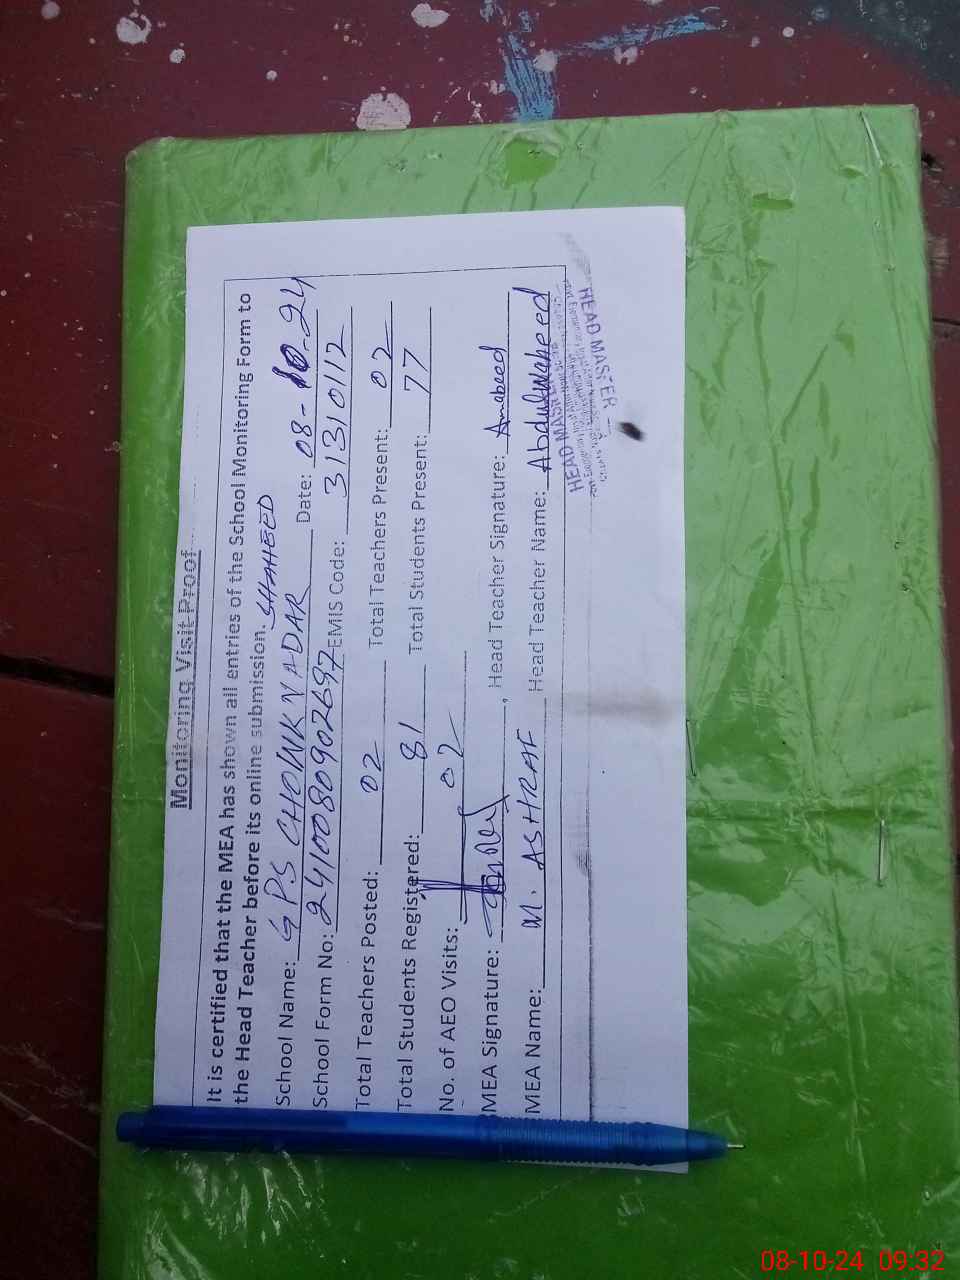 Monitoring Visit Proof
It is certified that the MEA has shown all entries of the School Monitoring Form to
the Head Teacher before its online submission.
School Name: GPS CHOINK NADAR SHAHEED Date: 08-10-24
School Form No: 241008090902697 EMIS Code: 31310112
Total Teachers Posted: 02 Total Teachers Present: 02
Total Students Registered: 81 Total Students Present: 77
No. of AEO Visits: 02
MEA Signature: , Head Teacher Signature: Amabeed
MEA Name: M. ASHRAF Head Teacher Name: Abdulwaheed
HEAD MASTER
HEAD MASTER
08-10-24 09:32